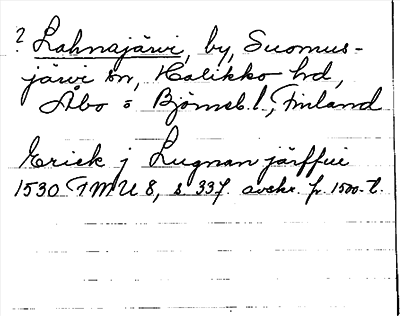 ? Lahnajärvi, by, Suomus-
järvi sn, Halikko hd,
Åbo o Björneb. l., Finland
Erick j Lugnan järffui
1530 TMU 8, s 337 avskr. fr. 1500-t.